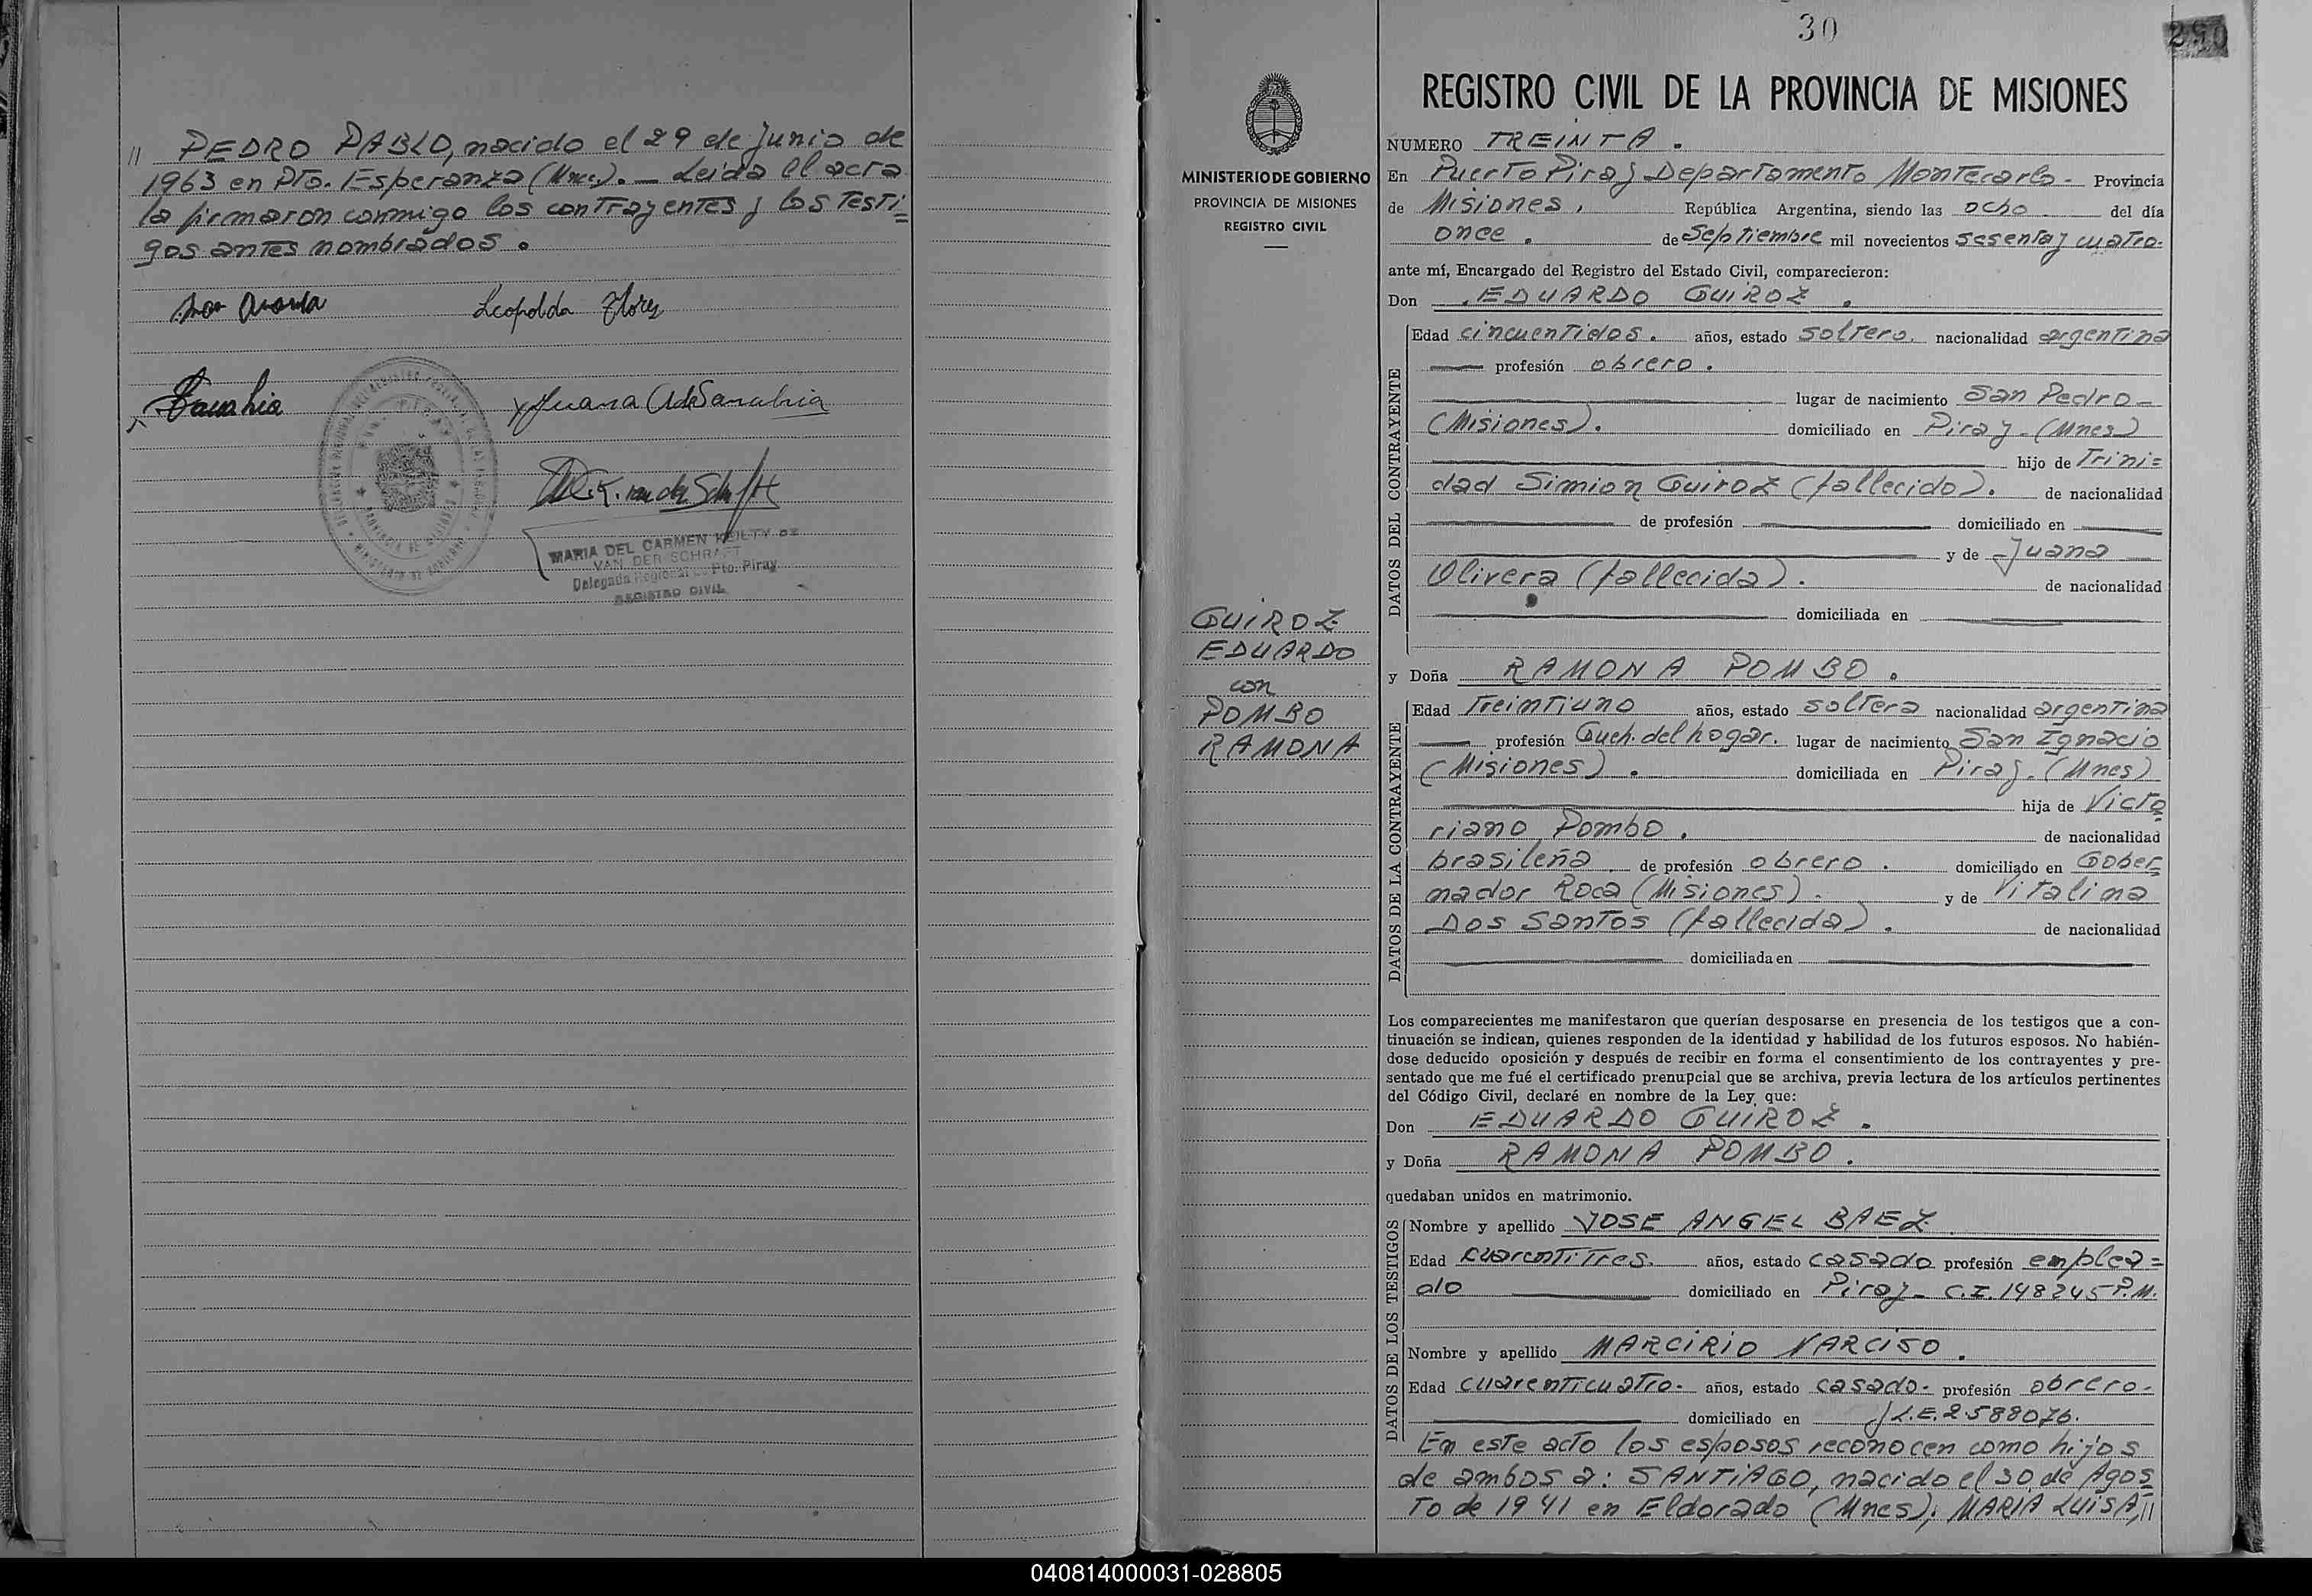 // PEDRO PABLO, nacido el 29 de Junio de
1963 en Pto. Esperanza (Mnes). — Leída el acta
la firmaron conmigo los contrayentes y los testi=
gos antes nombrados.
Leopolda Flores
Sanabria
Juana Ada Sanabria
MARIA DEL CARMEN KEILTY DE
VAN DER SCHRAFT
Delegada Regional Pto. Piray
REGISTRO CIVIL
30
290
MINISTERIO DE GOBIERNO
PROVINCIA DE MISIONES
REGISTRO CIVIL
GUIROZ
EDUARDO
con
POMBO
RAMONA
REGISTRO CIVIL DE LA PROVINCIA DE MISIONES
NUMERO TREINTA.
En Puerto Piray Departamento Montecarlo - Provincia
de Misiones, República Argentina, siendo las ocho del día
once. de Septiembre mil novecientos sesenta y cuatro.
ante mí, Encargado del Registro del Estado Civil, comparecieron:
Don EDUARDO GUIROZ.
DATOS DEL CONTRAYENTE
Edad cincuentidos. años, estado soltero. nacionalidad argentina
profesión obrero.
lugar de nacimiento San Pedro -
(Misiones). domiciliado en Piray - (Mnes)
hijo de Trini=
dad Simion Guiroz (fallecido). de nacionalidad
de profesión domiciliado en
y de Juana
Olivera (fallecida). de nacionalidad
domiciliada en
y Doña RAMONA POMBO.
DATOS DE LA CONTRAYENTE
Edad Treintiuno años, estado soltera nacionalidad argentina
profesión Queh. del hogar. lugar de nacimiento San Ignacio
(Misiones). domiciliada en Piray. (Mnes)
hija de Victo=
riano Pombo. de nacionalidad
brasileña de profesión obrero. domiciliado en Gober=
nador Roca (Misiones). y de Vitalina
Dos Santos (fallecida). de nacionalidad
domiciliada en
Los comparecientes me manifestaron que querían desposarse en presencia de los testigos que a con-
tinuación se indican, quienes responden de la identidad y habilidad de los futuros esposos. No habién-
dose deducido oposición y después de recibir en forma el consentimiento de los contrayentes y pre-
sentado que me fué el certificado prenupcial que se archiva, previa lectura de los artículos pertinentes
del Código Civil, declaré en nombre de la Ley que:
Don EDUARDO GUIROZ.
y Doña RAMONA POMBO.
quedaban unidos en matrimonio.
DATOS DE LOS TESTIGOS
Nombre y apellido JOSE ANGEL BAEZ
Edad cuarentitres. años, estado casado profesión emplea=
do domiciliado en Piray - C.I. 148245 P.M.
Nombre y apellido MARCIRIO NARCISO.
Edad cuarenticuatro - años, estado casado - profesión obrero -
domiciliado en L.E. 2.588076.
En este acto los esposos reconocen como hijos
de ambos a: SANTIAGO, nacido el 30 de Agos=
to de 1941 en Eldorado (Mnes); MARIA LUISA, //
040814000031-028805